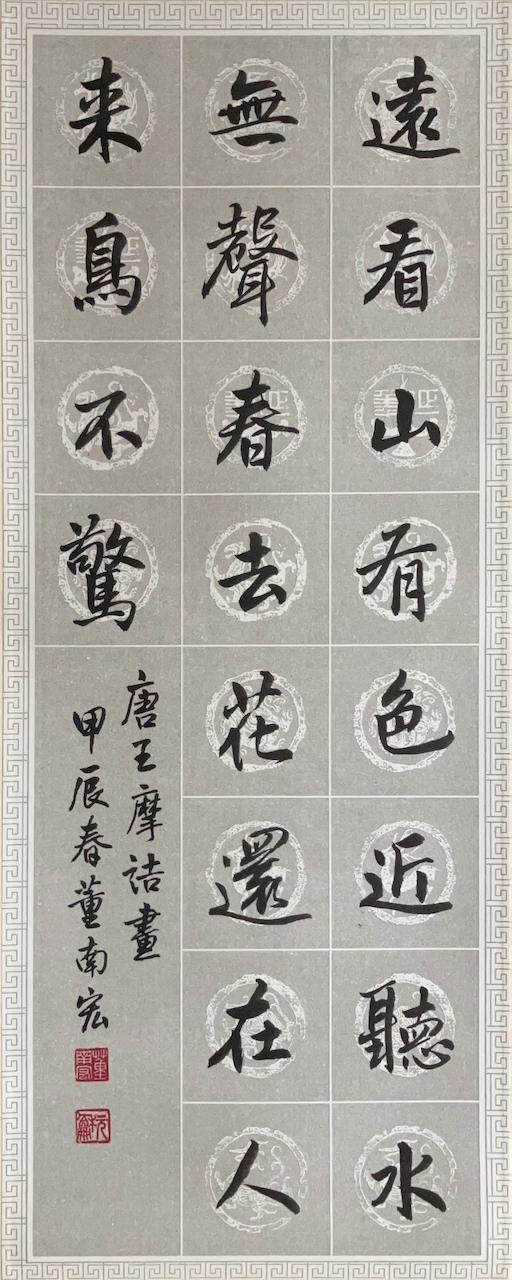 遠看山有色近聽水
無聲春去花還在人
来鳥不驚
唐王摩詰畫
甲辰春董南宏